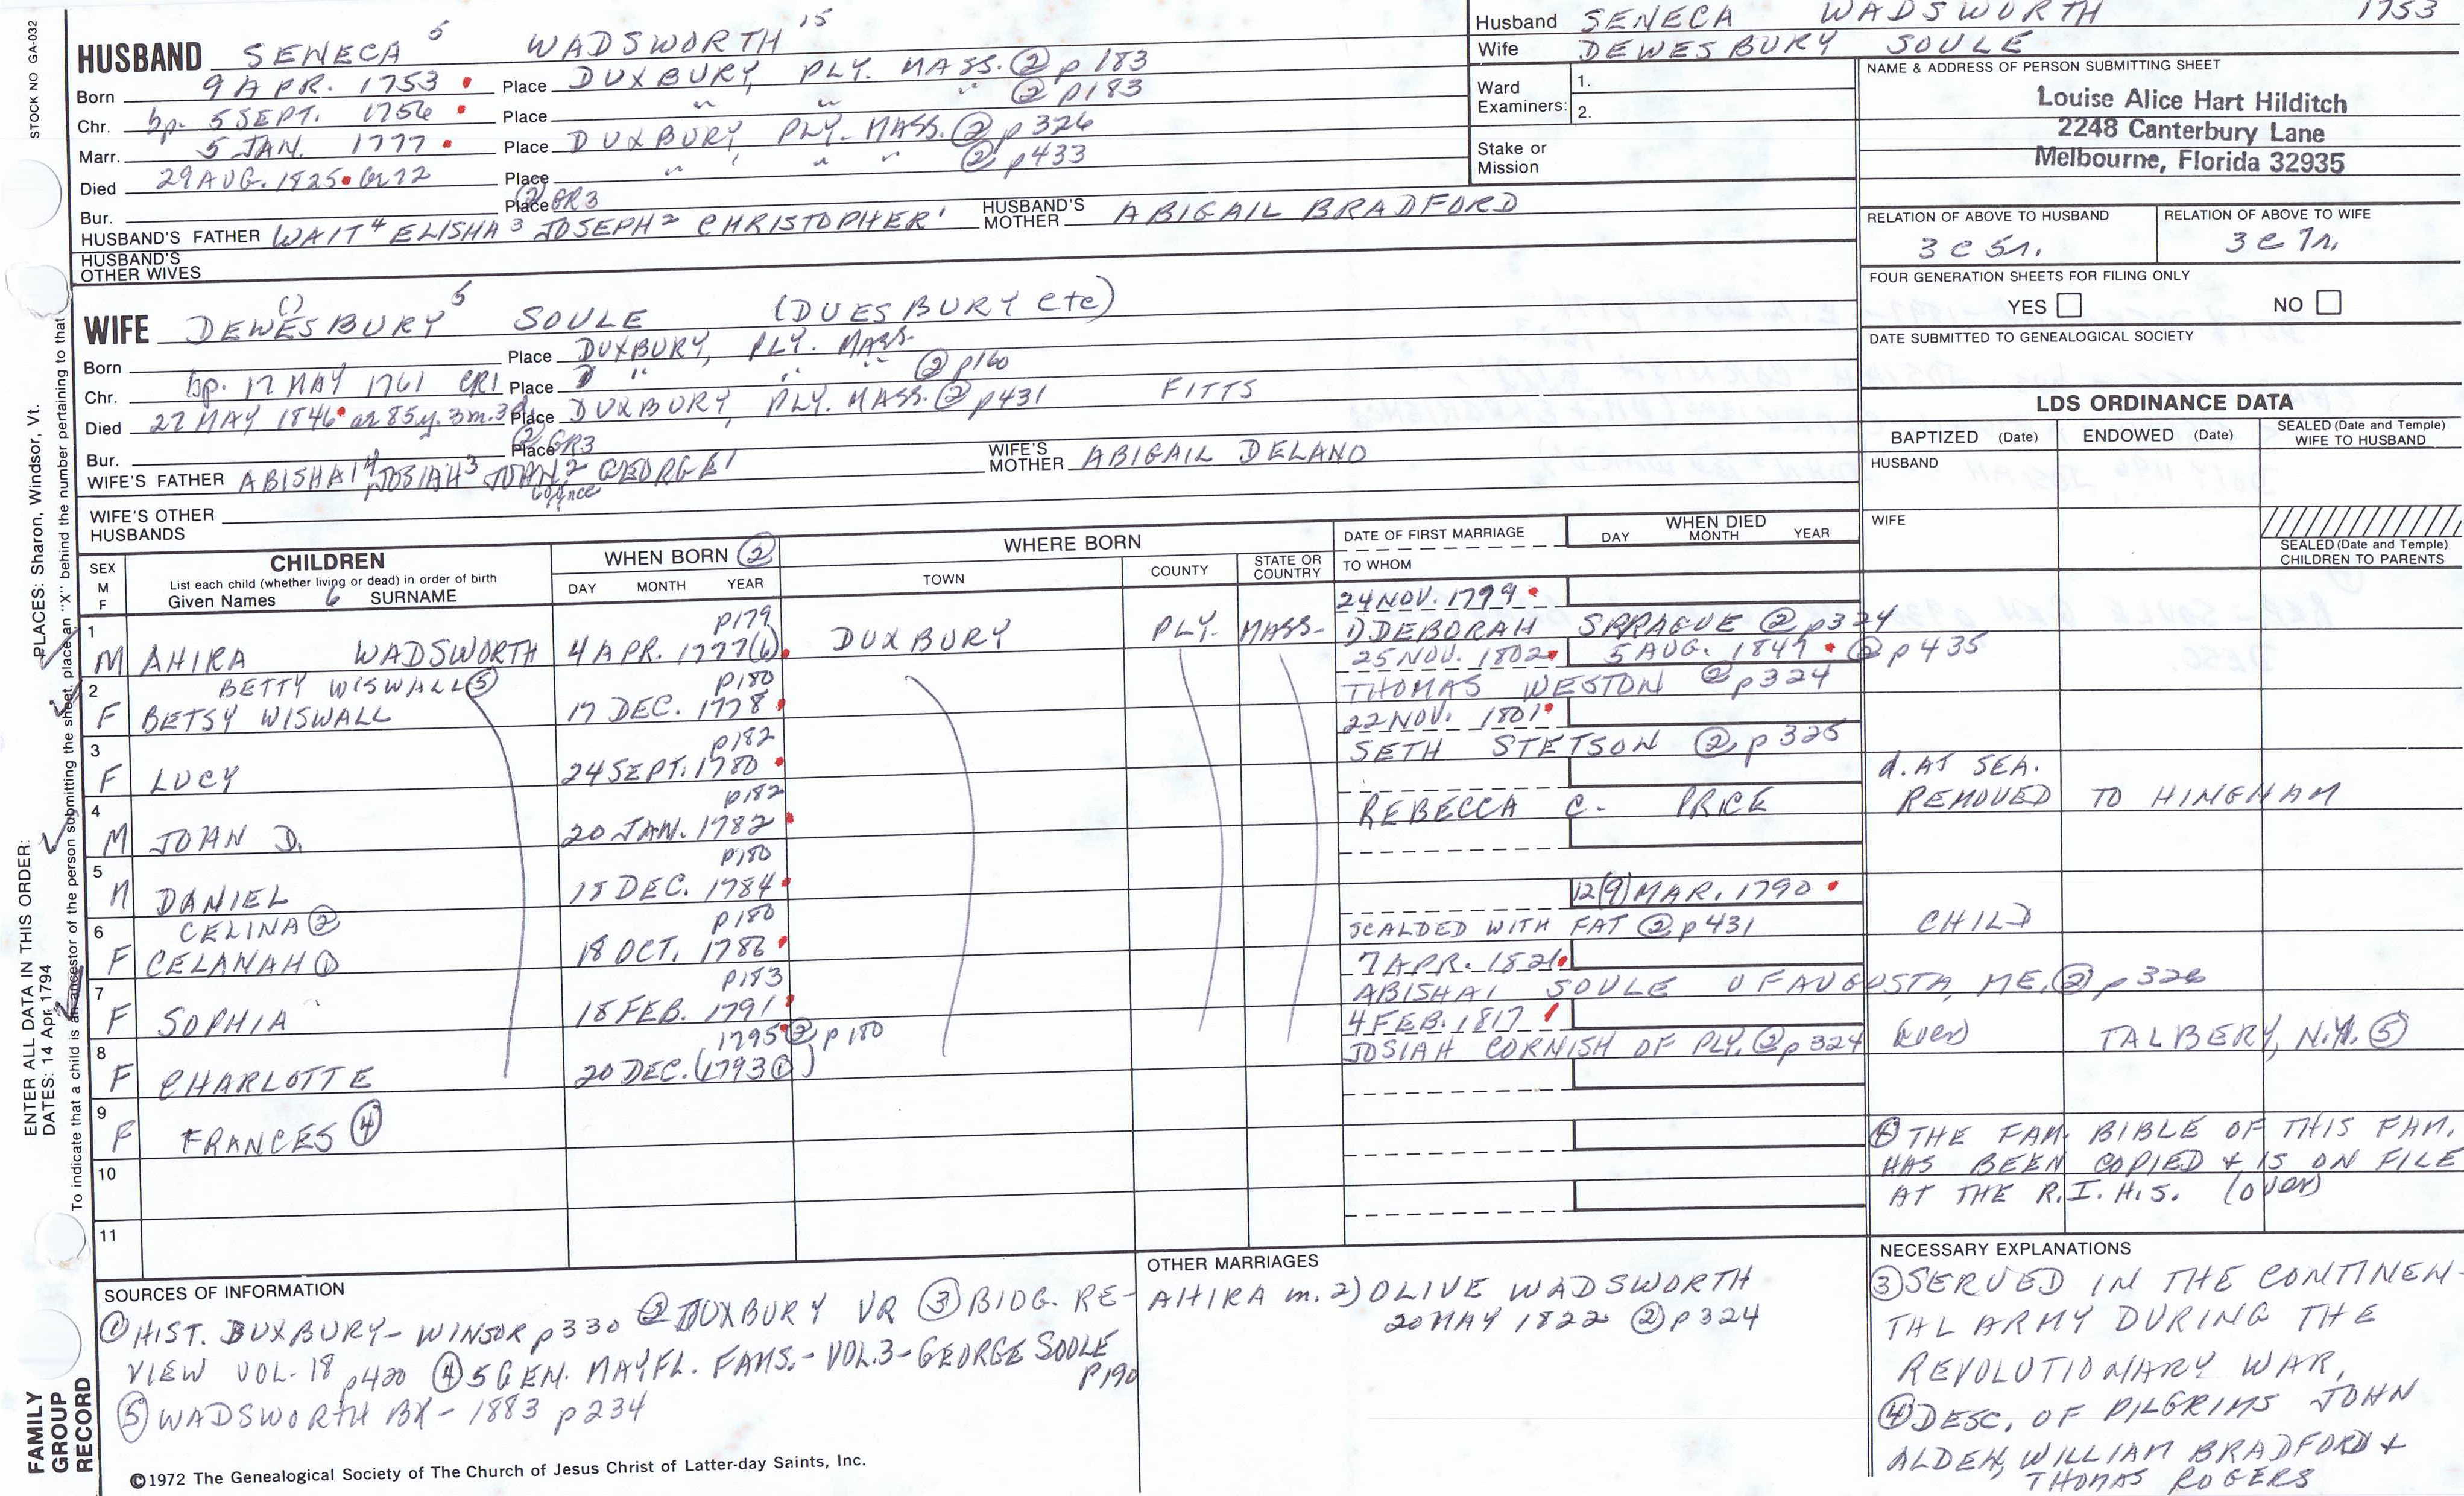 STOCK NO GA-032
HUSBAND SENECA 5 WADSWORTH 15
Born 9 APR. 1753 Place DUXBURY, PLY. MASS. ② p 183
Chr. bp. 5 SEPT. 1756 Place " " " ② p183
Marr. 5 JAN. 1777 Place DUXBURY PLY. MASS. ② p 326
Died 29 AUG. 1825 ae 72 Place " " " ② p433
Bur. Place ② GR3
HUSBAND'S FATHER WAIT 4 ELISHA 3 JOSEPH 2 CHRISTOPHER 1 HUSBAND'S MOTHER ABIGAIL BRADFORD
HUSBAND'S OTHER WIVES
Husband SENECA WADSWORTH 1753
Wife DEWESBURY SOULE
Ward Examiners: 1.
2.
Stake or Mission
NAME & ADDRESS OF PERSON SUBMITTING SHEET
Louise Alice Hart Hilditch
2248 Canterbury Lane
Melbourne, Florida 32935
RELATION OF ABOVE TO HUSBAND RELATION OF ABOVE TO WIFE
3 c 5r. 3 c 7r.
FOUR GENERATION SHEETS FOR FILING ONLY
YES NO
DATE SUBMITTED TO GENEALOGICAL SOCIETY
WIFE DEWESBURY () 6 SOULE (DUESBURY etc)
Born Place DUXBURY, PLY. MASS.
Chr. bp. 17 MAY 1761 CR1 Place " " " ② p160
Died 27 MAY 1846 ae 85 y. 3 m. Place DUXBURY, PLY. MASS. ② p431 FITTS
Bur. Place ② GR3
WIFE'S FATHER ABISHAI 4 JOSIAH 3 JOHN 2 GEORGE 1 WIFE'S MOTHER ABIGAIL DELANO
WIFE'S OTHER HUSBANDS
LDS ORDINANCE DATA
BAPTIZED (Date) ENDOWED (Date) SEALED (Date and Temple) WIFE TO HUSBAND
HUSBAND
WIFE
SEALED (Date and Temple) CHILDREN TO PARENTS
SEX M F CHILDREN
List each child (whether living or dead) in order of birth
Given Names 6 SURNAME
WHEN BORN ② DAY MONTH YEAR
WHERE BORN TOWN COUNTY STATE OR COUNTRY
DATE OF FIRST MARRIAGE TO WHOM
WHEN DIED DAY MONTH YEAR
24 NOV. 1799
1 M AHIRA WADSWORTH p179 4 APR. 1777(6) DUXBURY PLY. MASS. 1) DEBORAH SPRAGUE ② p324
25 NOV. 1802 5 AUG. 1847 ② p 435
BETTY WISWALL ⑤
2 F BETSY WISWALL p180 17 DEC. 1778 THOMAS WESTON ② p324
22 NOV. 1801
3 F LUCY p182 24 SEPT. 1780 SETH STETSON ② p 325
d. AT SEA.
4 M JOHN D. p182 20 JAN. 1782 REBECCA C. PRICE REMOVED TO HINGHAM
5 M DANIEL p180 18 DEC. 1784
12(9) MAR. 1790
CELINA ②
6 F CELANAH ① p180 18 OCT. 1786 SCALDED WITH FAT ② p431 CHILD
7 APR. 1821
7 F SOPHIA p183 18 FEB. 1791 ABISHAI SOULE OF AUGUSTA, ME. ② p 326
4 FEB. 1817
8 F CHARLOTTE 1795 ② p 180 20 DEC. (1793 ①) JOSIAH CORNISH OF PLY. ② p 324 (over) TALBERY, N.Y. ⑤
9 F FRANCES ④
10
11
④ THE FAM. BIBLE OF THIS FAM.
HAS BEEN COPIED + IS ON FILE
AT THE R.I.H.S. (over)
SOURCES OF INFORMATION
① HIST. DUXBURY - WINSOR p 330 ② DUXBURY VR ③ BIOG. RE-
VIEW VOL. 18 p420 ④ 5 GEN. MAYFL. FAMS. - VOL. 3 - GEORGE SOULE
p190
⑤ WADSWORTH BK - 1883 p 234
©1972 The Genealogical Society of The Church of Jesus Christ of Latter-day Saints, Inc.
OTHER MARRIAGES
AHIRA m. 2) OLIVE WADSWORTH
20 MAY 1822 ② p 324
NECESSARY EXPLANATIONS
③ SERVED IN THE CONTINEN-
TAL ARMY DURING THE
REVOLUTIONARY WAR.
④ DESC. OF PILGRIMS JOHN
ALDEN, WILLIAM BRADFORD +
THOMAS ROGERS
ENTER ALL DATA IN THIS ORDER: PLACES: Sharon, Windsor, Vt.
DATES: 14 Apr 1794
To indicate that a child is an ancestor of the person submitting the sheet, place an "X" behind the number pertaining to that
FAMILY GROUP RECORD